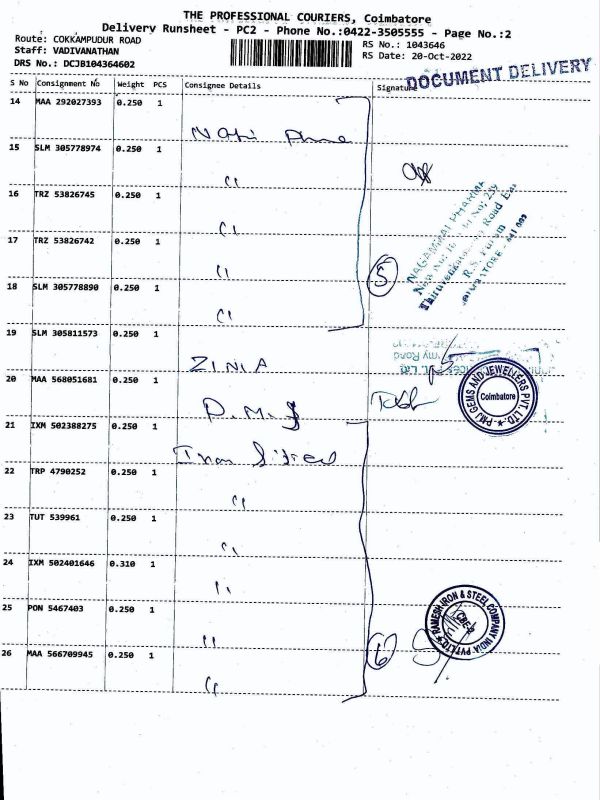 THE PROFESSIONAL COURIERS, Coimbatore
Delivery Runsheet - PC2 - Phone No.:0422-3505555 - Page No.:2
Route: COKKAMPUDUR ROAD
Staff: VADIVANATHAN
DRS No.: DCJB104364602
RS No.: 1043646
RS Date: 20-Oct-2022
DOCUMENT DELIVERY
S No Consignment No Weight PCS Consignee Details Signature
14 MAA 292027393 0.250 1
15 SLM 305778974 0.250 1
"
16 TRZ 53826745 0.250 1
"
17 TRZ 53826742 0.250 1
"
18 SLM 305778890 0.250 1
"
5
NAGAMMAI PHARMA
19 SLM 305811573 0.250 1
ZINIA
20 MAA 568051681 0.250 1
PMJ GEMS AND JEWELLERS PVT. LTD.
Coimbatore
21 IXM 502388275 0.250 1
22 TRP 4790252 0.250 1
"
23 TUT 539961 0.250 1
"
24 IXM 502401646 0.310 1
"
25 PON 5467403 0.250 1
"
26 MAA 566709945 0.250 1
"
6
RAMESH IRON & STEEL COMPANY INDIA PVT LTD